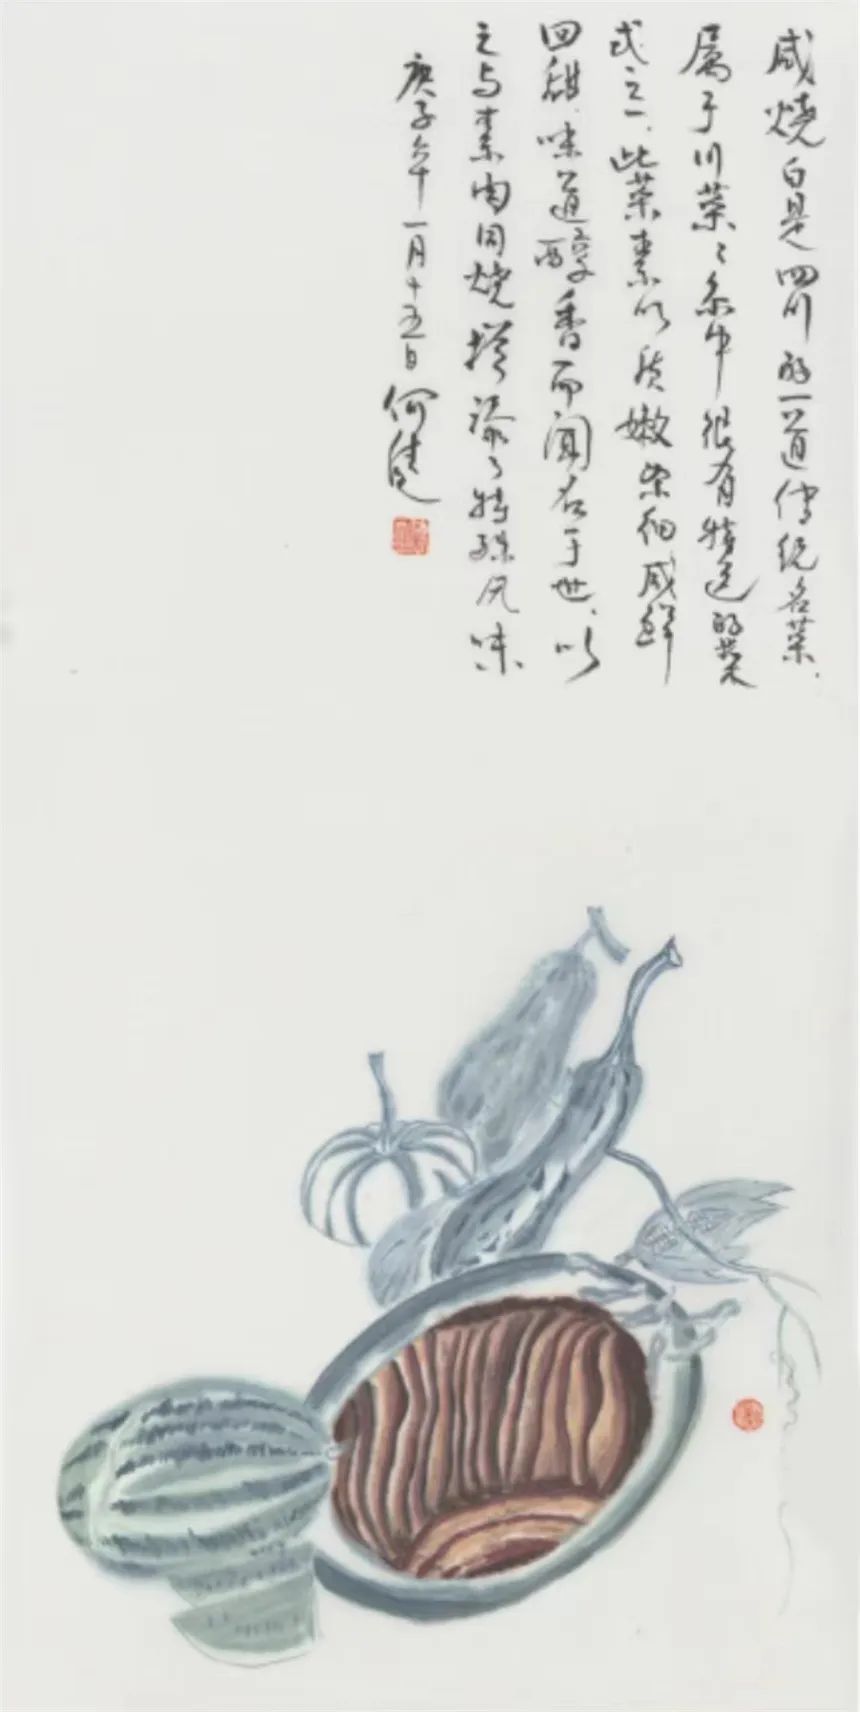 咸燒白是四川的一道传统名菜、
属于川菜之系中很有特色的菜
式之一、此菜素以质嫩柔细咸鲜
回甜、味道醇香而闻名于世、以
之与素肉同烧增添了特殊风味
庚子年一月十五日 何